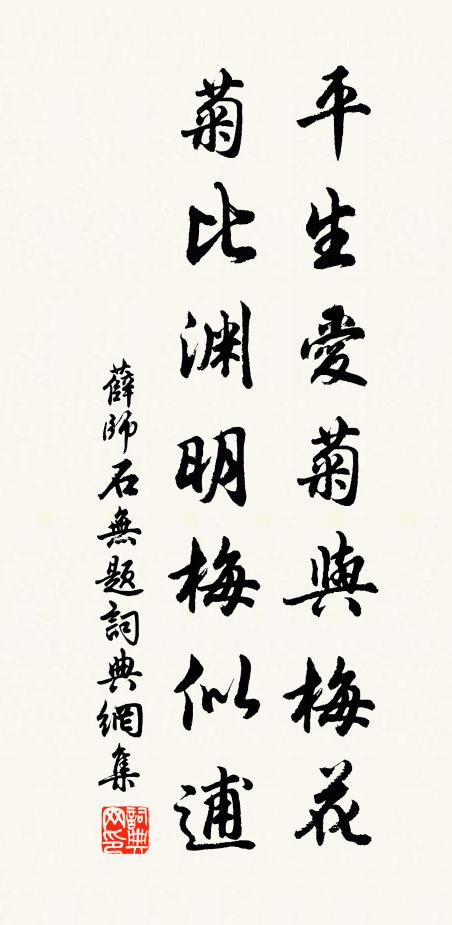 平生愛菊與梅花
菊比渊明梅似逋
薛師石無題詞典網集
詞典网印